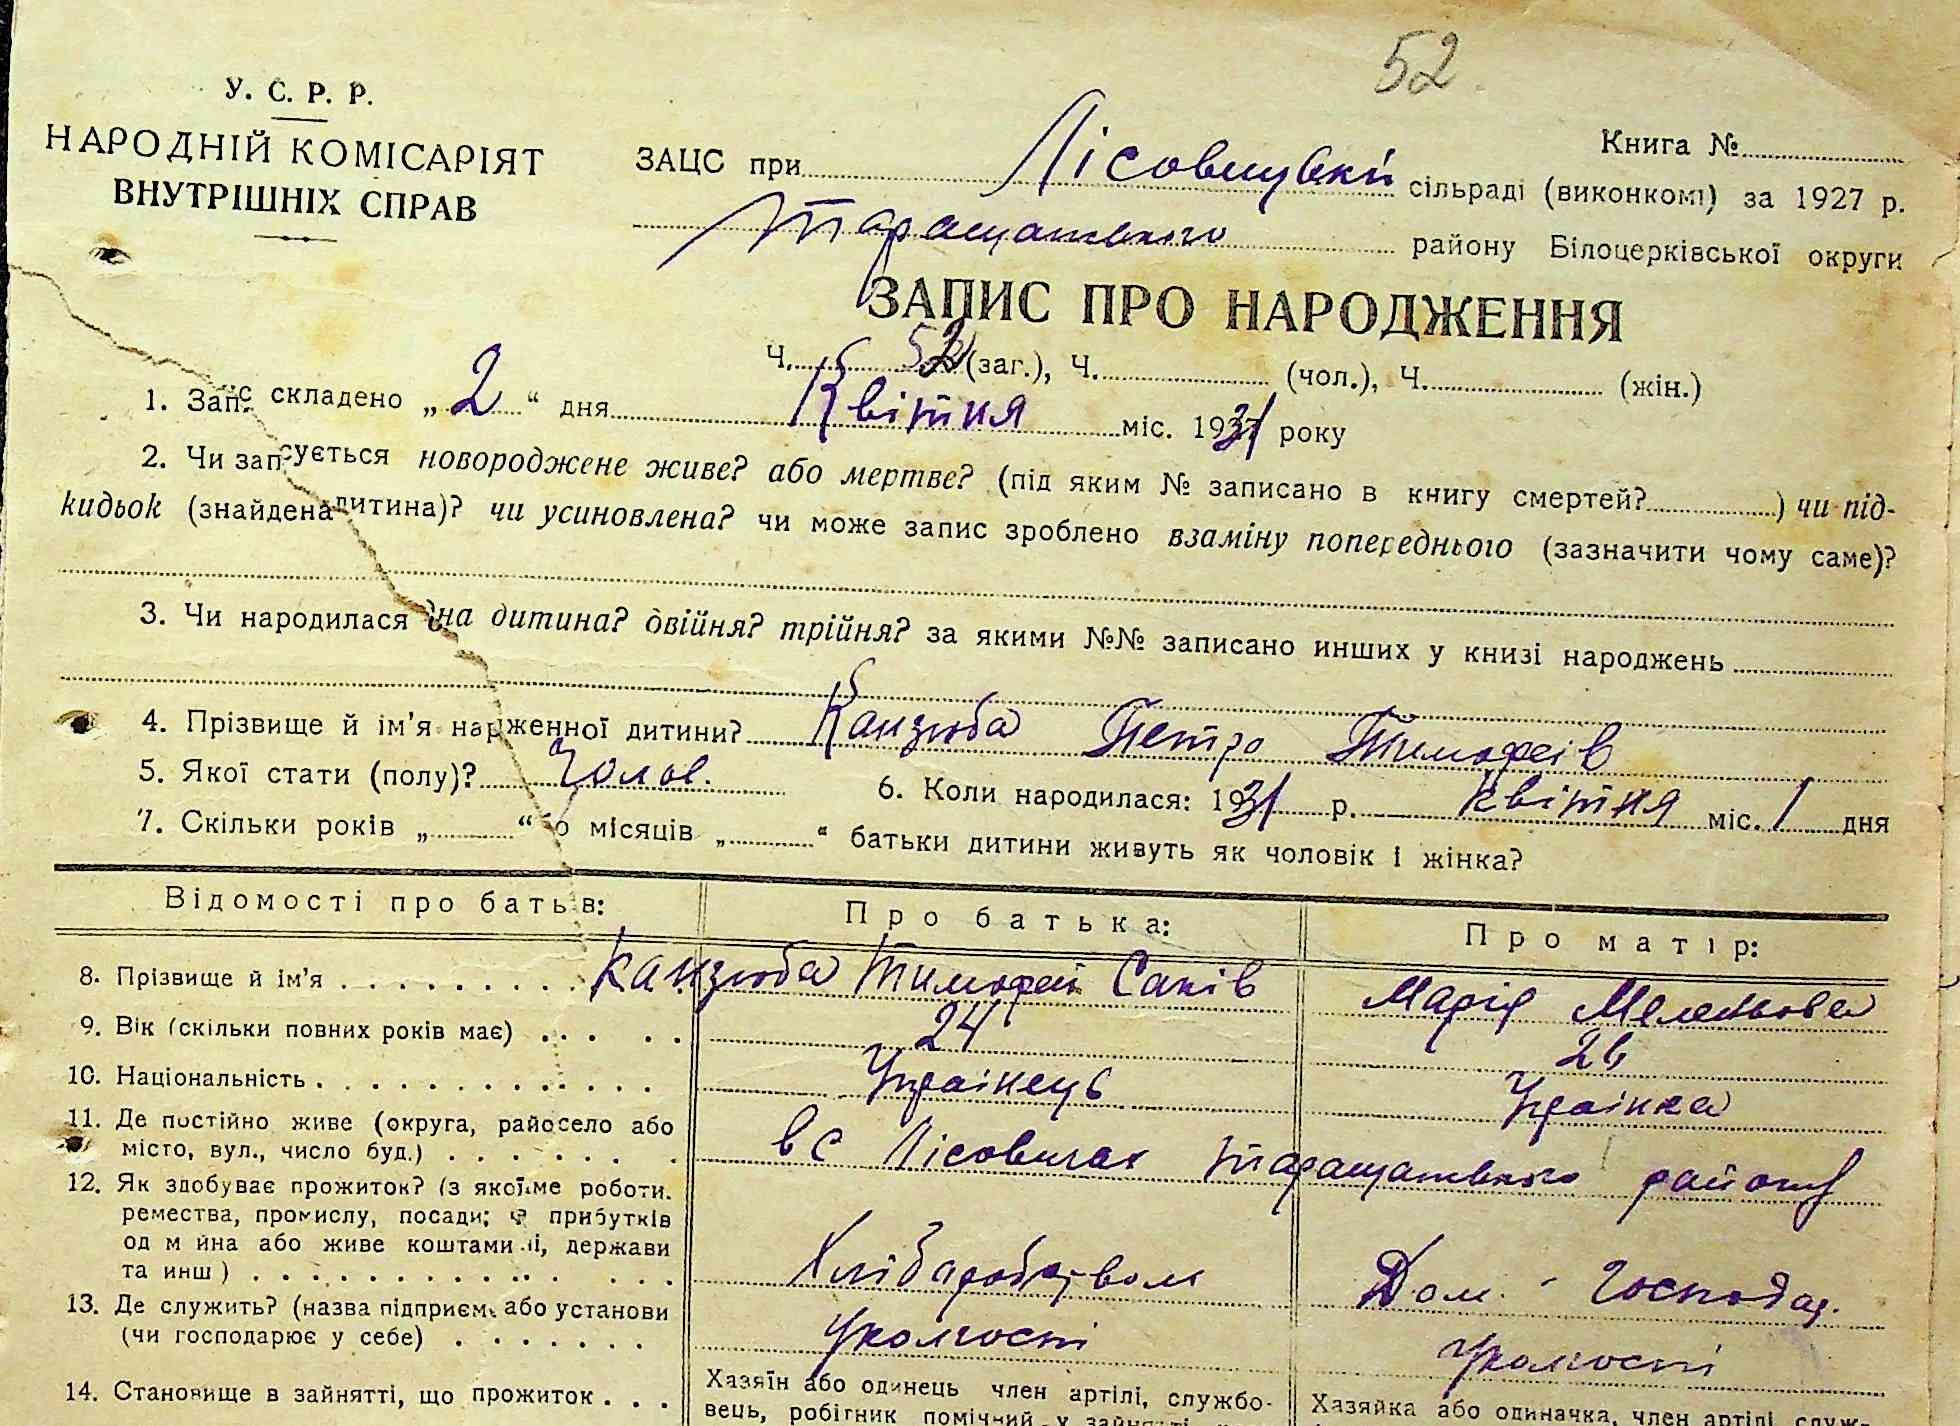 52
У. С. Р. Р.
НАРОДНІЙ КОМІСАРІЯТ
ВНУТРІШНІХ СПРАВ
Книга №
ЗАЦС при Лісовицькій сільраді (виконкомі) за 1927 р.
Таращанського району Білоцерківської округи
ЗАПИС ПРО НАРОДЖЕННЯ
Ч. 52 (заг.), Ч. (чол.), Ч. (жін.)
1. Запис складено „ 2 “ дня Квітня міс. 1931 року
2. Чи записується новороджене живе? або мертве? (під яким № записано в книгу смертей? ) чи під-
кидьок (знайдена дитина)? чи усиновлена? чи може запис зроблено взаміну попереднього (зазначити чому саме)?
3. Чи народилася дна дитина? двійня? трійня? за якими №№ записано инших у книзі народжень
4. Прізвище й ім’я нарженної дитини? Канзюба Петро Тимофеів
5. Якої стати (полу)? Чолов. 6. Коли народилася: 1931 р. Квітня міс. 1 дня
7. Скільки років „ “ бо місяців „ “ батьки дитини живуть як чоловік і жінка?
Відомості про батьів: Про батька: Про матір:
8. Прізвище й ім’я Канзюба Тимофей Саків Марія
9. Вік (скільки повних років має) 24 26
10. Національність Українець Українка
11. Де постійно живе (округа, райосело або
місто, вул., число буд.) в с Лісовичах Таращанського району
12. Як здобуває прожиток? (з якоїме роботи.
ремества, промислу, посади; чи прибутків
од м йна або живе коштами її, держави
та инш) Хліборобством Дом. господар.
13. Де служить? (назва підприєм. або установи
(чи господарює у себе) Уколгоспі Уколгоспі
14. Становище в зайнятті, що прожиток Хазяїн або одинець член артілі, службо-
вець, робітник помічний у Хазяйка або одиначка, член артілі служ-